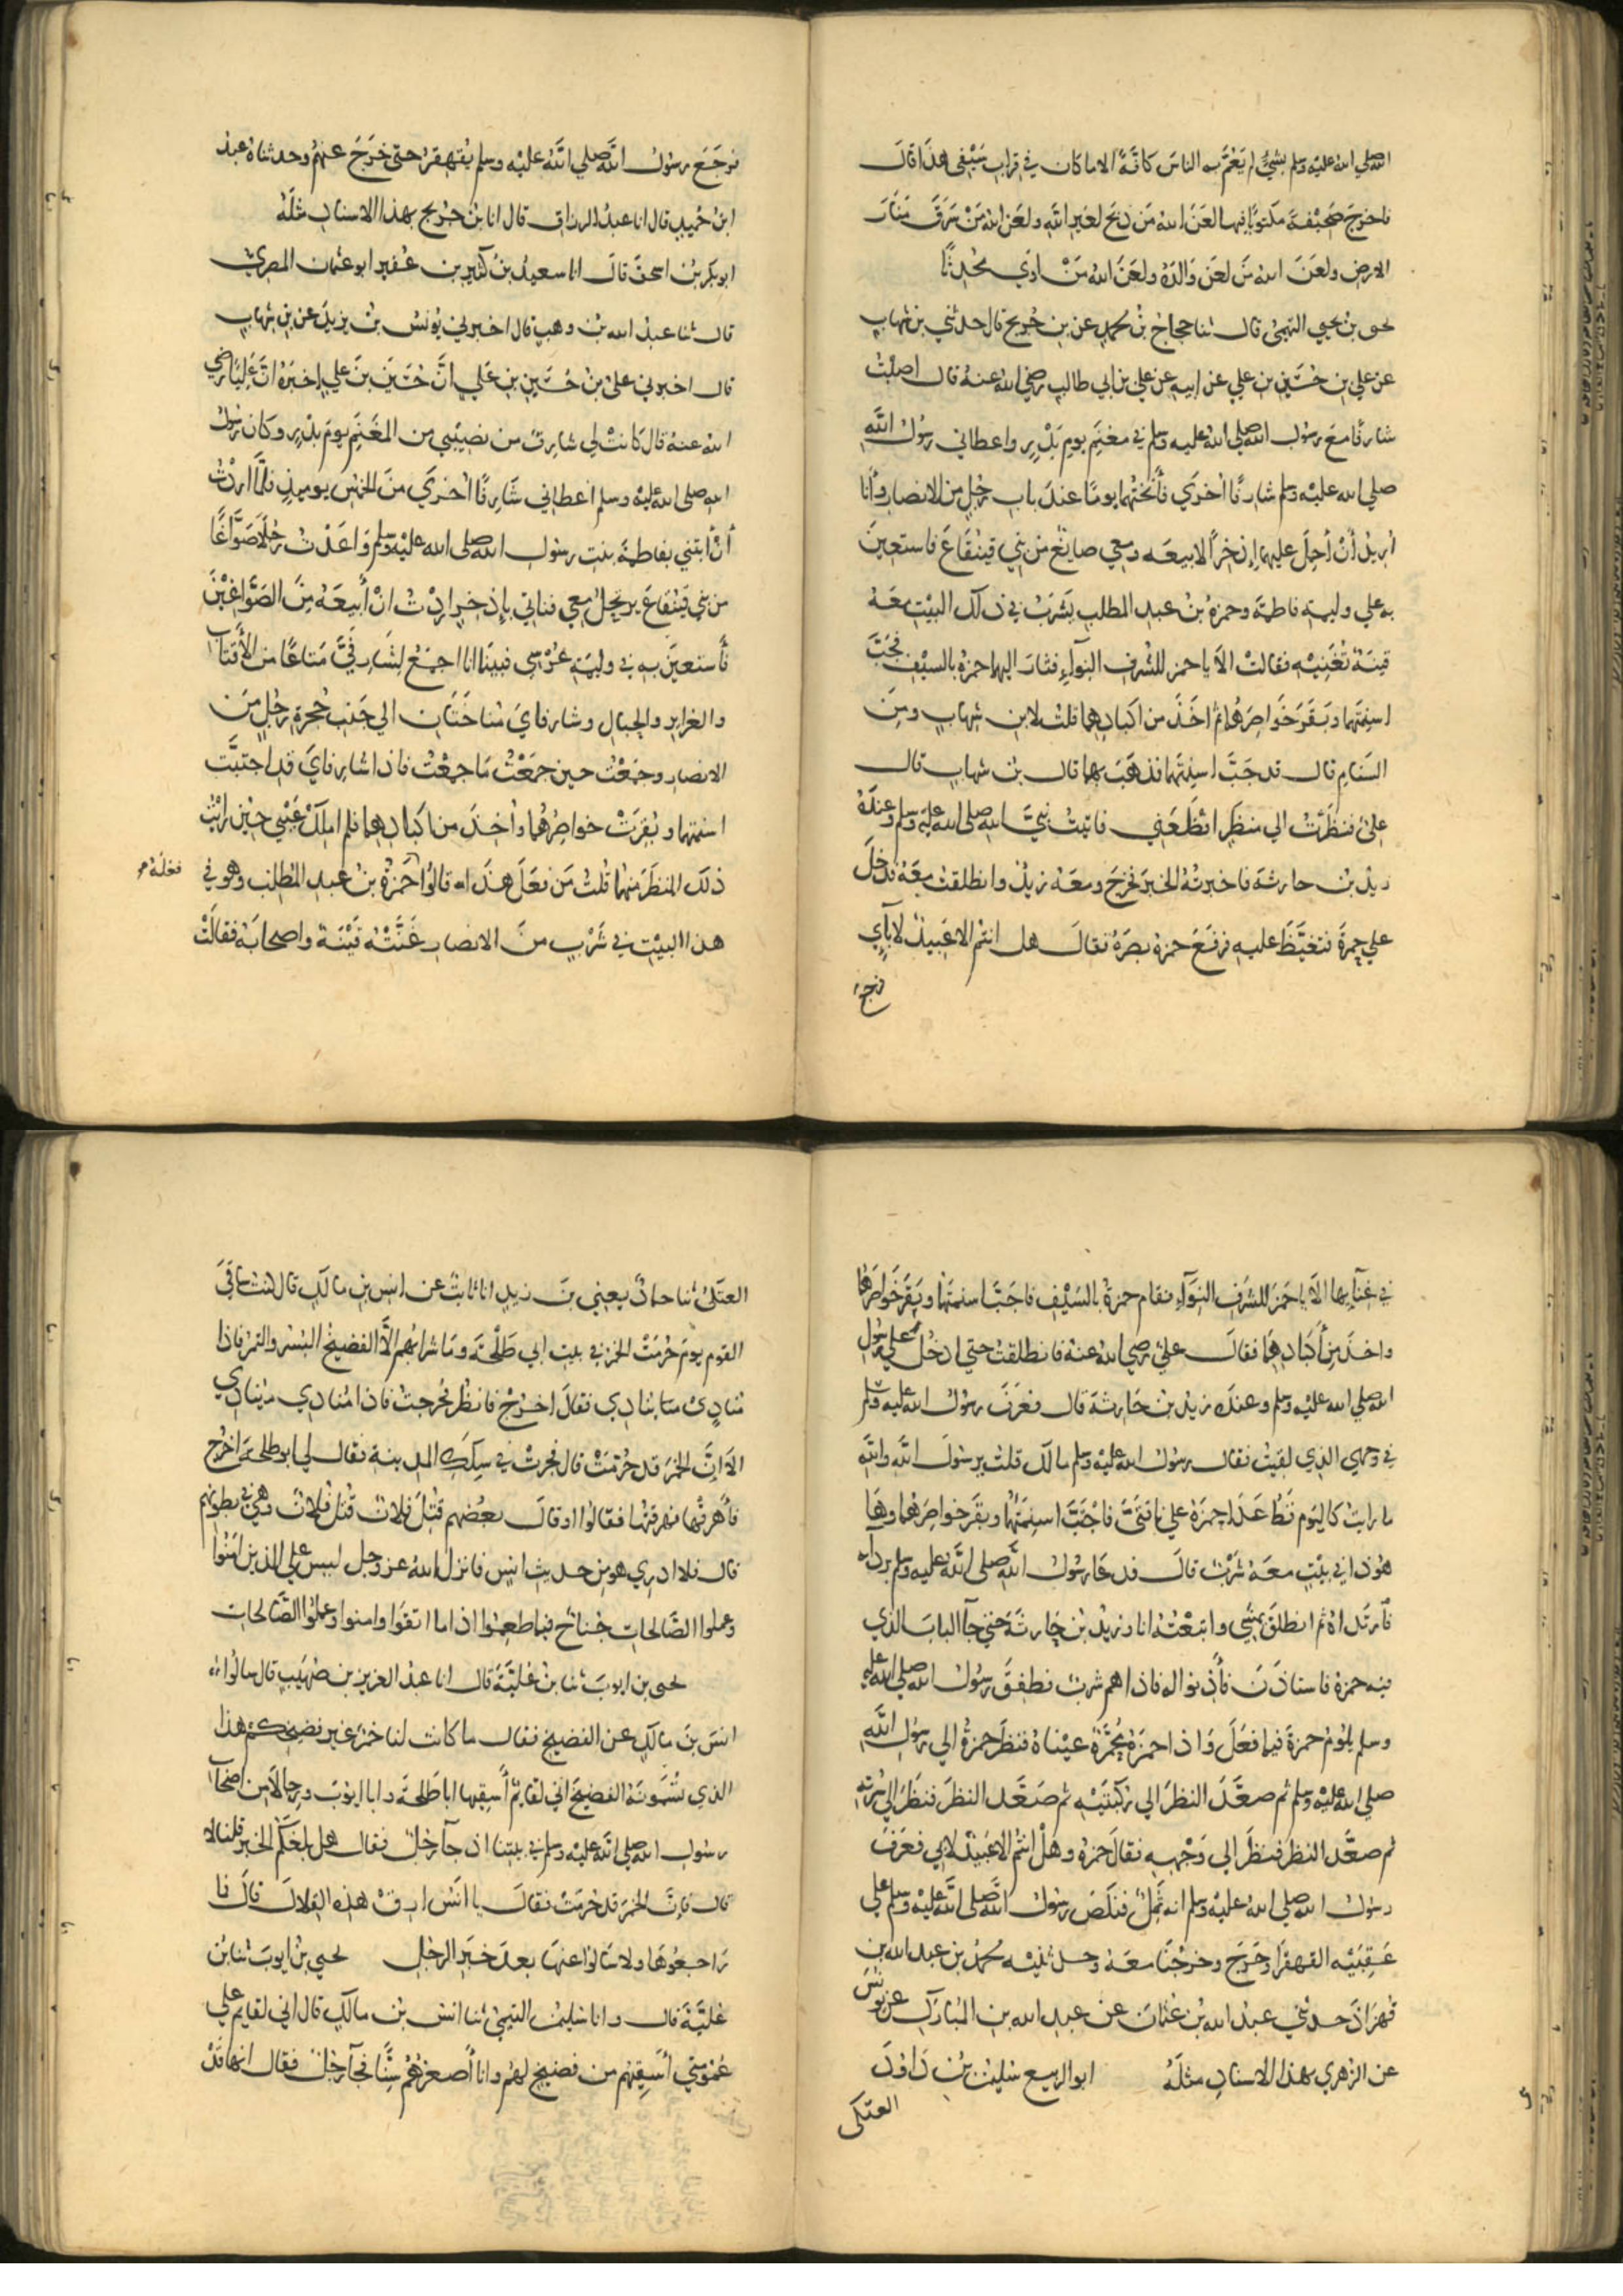 الله صلي الله عليه وسلم بشيء لم يَعُمَّ به الناسَ كافَّةً الا ما كان في قراب سَيْفي هذا قالَ
فاخرجَ صَحيْفةً مكتوبًا فيها لعَنَ الله مَن ذبَح لغيرِ اللهِ ولعَن الله مَنْ سَرَقَ مَنارَ
الارضِ ولعَنَ الله مَن لعَن وَالدَهُ ولعَنَ الله مَنْ اوَي مُحْدِثًا
يحيى بن يحيي التميميُ قال ثنا حجاجُ بنُ محمدٍ عن بن جُريج قال حدثني بن شهابٍ
عن علي بن حُسَينِ بن علي عن ابيه عن علي بن ابي طالب رضي الله عنهُ قال اصبْتُ
شارفًا مَعَ رسُول الله صلي الله عليه وسلم في مغنَمٍ يوم بَدْرٍ واعطاني رسُول اللهِ
صلي الله عليْه وسلم شارفًا اخرَي فأنختُهما يومًا عندَ باب رجُلٍ من الانصارِ وأنا
اُريدُ أنْ أحمِلَ عليهما إذخِرًا لابيعَه ومعي صايغٌ من بني قينُقَاعَ فاستعينَ
به علي وليمةِ فاطمةَ وحمزةُ بنُ عبدِ المطلبِ يَشرَبُ في ذلك البيْتِ معَهُ
قينةٌ تُغَنيْه فقالتْ الاَ يا حمز للشُرفِ النِوآءِ فثارَ اليهما حمزةُ بالسيْفِ فجَبَّ
اسنِمتَهما وبَقَرَ خَواصرَهُما ثم اخَذَ من اكبادِهما قلتُ لابن شهابٍ ومِنَ
السَنامِ قال قد جَبَّ اسنِمتَهما فذهَبَ بها قال بن شهاب قال
عليٌ فنظَرتُ الي منظرٍ افظَعَني فاتيتُ نبيَّ الله صلى الله عليه وسلم وعندَهُ
زيدُ بن حارثةَ فاخبرتُهُ الخبرَ فخرَجَ ومعَهُ زيدٌ وانطلقتُ معَهُ فدخَلَ
علي حمزةَ فتغيَّظَ عليه فرفَعَ حمزةُ بصرَهُ فقالَ هل انتم الا عَبيدٌ لآباي
فرجع
فرَجَعَ رسُول الله صلي الله عليْه وسلم يُقهقرُ حتى خرَجَ عنهُمُ وحدثناهُ عبدُ
ابنُ حُميدٍ قال انا عبدُ الرزاقِ قال انا بنُ جُريج بهذا الاسنادِ مثلَهُ
ابو بكرِ بنُ اسحقَ قالَ انا سعيدُ بنُ كثيرِ بن عُفيرٍ ابو عثمان المصريُّ
قال ثنا عبدُ الله بنُ وهبٍ قال اخبرني يُونسُ بنُ يزيدَ عن بن شهابٍ
قال اخبرني عليُ بنُ حُسَينِ بنِ عَليٍ انَّ حُسَينَ بنَ عليٍ اخبَرَهُ انَّ عَليًا رضي
الله عنهُ قال كانتْ لي شارفٌ من نصيْبي من المغنَمِ يومَ بدْرٍ وكان رسُولُ
الله صلى الله عليْه وسلم اعطاني شارفًا اخرَي منَ الخمُسِ يوميذٍ فلمَّا اردْتُ
أنْ أبتنيَ بفاطمةَ بنتِ رسُول الله صلى الله عليْه وسلم وَاعَدْتُ رجُلاً صَوَّاغًا
من بني قَينُقاعَ يرتحلُ معي فناتي بإذخِرٍ اردْتُ انْ أبيعَهُ مِنَ الصَوَّاغِيْنَ
فأستعينَ به في وليمةِ عُرْسي فبينَا انا اجمَعُ لشارفيَّ مَتاعًا من الأَقتابِ
والغرايرِ والحبالِ وشارفايَ مُناخَتَانِ الي جَنبِ حُجرةِ رجُلٍ من
الانصارِ وجمَعْتُ حينَ جمَعْتُ مَا جمعْتُ فاذا شارفايَ قد اجتبَّت
اسنمتهما وبُقِرَتْ خواصرُهُما واُخِذَ من اكبادِهما فلم املكْ عَيْني حيْنَ رايْتُ
ذلكَ المنظَرَ منهما قُلتُ مَن فعَلَ هذا قالُوا حَمزةُ بنُ عبد المطلب وهو في
فعله
هذا البيْتِ في شَرْبٍ منَ الانصارِ غَنَّتْهُ قَيْنَةٌ واصحابَهُ فقالَتْ
في غنآئها الاَ يا حَمزَ للشُرُفِ النِوَآءِ فقام حمزةُ بالسَيْفِ فاجتَبَّ اسنمتَهُما وبَقَرَ خَواصرَهُما
واخذَ مِن أكبادِهِمَا فقالَ عليٌ رضي الله عنهُ فانطلقتُ حتي ادخُلَ علي رسُولِ
الله صلي الله عليْه وسلم وعندَه زيدُ بن حَارثةَ قال فعَرَفَ رسُولُ الله عليه وسلم
في وجهي الذي لقيتُ فقال رسُولُ الله عليْه وسلم مالكَ قلتُ يرسُولَ الله والله
ما رايتُ كاليَومِ قَطُّ عَدَا حمزةُ علي ناقتيَّ فاجْتَبَّ اسنِمَتَهُما وبقَرَ خواصرَهُما وهَا
هُوَ ذا في بيْتٍ معَهُ شَرْبٌ قالَ فدعَا رسُولُ الله صلى الله عليه وسلم برداه
فارتداهُ ثم انطلقَ يمشي واتبَعْتُهُ انا وزيْدُ بن حارثَةَ حتي جآ البابَ الذي
فيه حمزةُ فاستاذنَ فأذِنوا له فاذا هم شربٌ فطفِقَ رسُول الله صلى الله عليه
وسلم يلُومُ حمزةَ فيما فعَلَ وَاذا حمزةُ مُحمَرَّةٌ عيْناهُ فنظَرَ حمزةُ الي رسُولِ اللهِ
صلي الله عليْه وسلم ثم صعَّدَ النظرَ الي رُكبَتَيْهِ ثم صَعَّدَ النظرَ فنظرَ الي سُرته
ثم صعَّد النظرَ فنظرَ الي وَجْههِ فقالَ حمزةُ وهَلْ انتُم الا عَبيْدٌ لابي فعَرَفَ
رسُول الله صلي الله عليْه وسلم انه ثَمِلٌ فنكَصَ رسُولُ الله صلى الله عليْه وسلم علي
عَقِبَيْه القهقرَا وخَرَج وخرجْنَا معَهُ وحدثنيْه محمدُ بن عبد الله بن
قُهزاذَ حدثني عبدُ الله بن عثمانَ عن عبد الله بن المُبارَكِ عن يونسَ
عن الزهري بهذا الاسنادِ مثلَهُ ابو الربيع سليمنُ بن داودَ
العتكي
العتَكيُ ثنا حمادٌ يعني بنَ زيدٍ انا ثابتٌ عن انسِ بنِ مالكٍ قال كنتُ ساقيَ
القومِ يومَ حُرِّمَتْ الخمرُ في بيتِ ابي طَلْحةَ ومَا شرابُهم الاَّ الفضيخُ البُسْر والتمرُ فاذا
مُنادٍ يُنادي فقالَ اخرُجْ فانظرْ فخرجتُ فاذا مُنادي ينادي
الاَ انَّ الخمرَ قد حُرِّمَتْ قال فجرتْ في سِكَكِ المدينة فقال لي ابو طلحةَ اخرُج
فأهرقْها فهرقتُها فقالوا او قالَ بعضُهم قُتِلَ فلانٌ قُتلَ فلانٌ وهي في بطونهم
قال فلا ادري هو من حديثِ انسٍ فانزلَ الله عز وجل ليسَ علي الذين امنُوا
وعملوا الصَّالحاتِ جُناحٌ فيما طعِمُوا اذا ما اتقَوا وامنوا وعملُوا الصَّالحاتِ
يحيى بن ايوبَ ثنا بن عُليَّةَ قال انا عبدُ العزيز بن صُهَيبٍ قال سالوُا
انسَ بنَ مالكٍ عن الفضيخِ فقال ما كانت لنا خمرٌ غير فضيخِكُم هذا
الذي تُسَمُّونَهُ الفضيخَ اني لقايمٌ أسقِيها ابا طَلحةَ وابا ايوبَ ورِجالاً من اصحابِ
رسُولِ الله صلى الله عليْه وسلم في بيتنا اذ جآ رَجُلٌ فقال هل بلغَكُم الخبر قلنا لا
قال فانَّ الخمرَ قد حُرِّمَتْ فقالَ يا انَسُ ارقْ هذه القِلالَ قالَ فا
رَاجعُوهَا ولا سَالوا عنها بعدَ خبَرِ الرجُلِ يحيي بن ايوبَ ثنا بن
عُليَّةَ قال وانا سُليمنُ التيميُ ثنا انسُ بنُ مالكٍ قال اني لقايمٌ علي
عُمُومَتي أسقِيْهِم من فضيخٍ لهُم وانا أصغرُهُم سِنًّا فجآ رجُلٌ فقال انها قَدْ